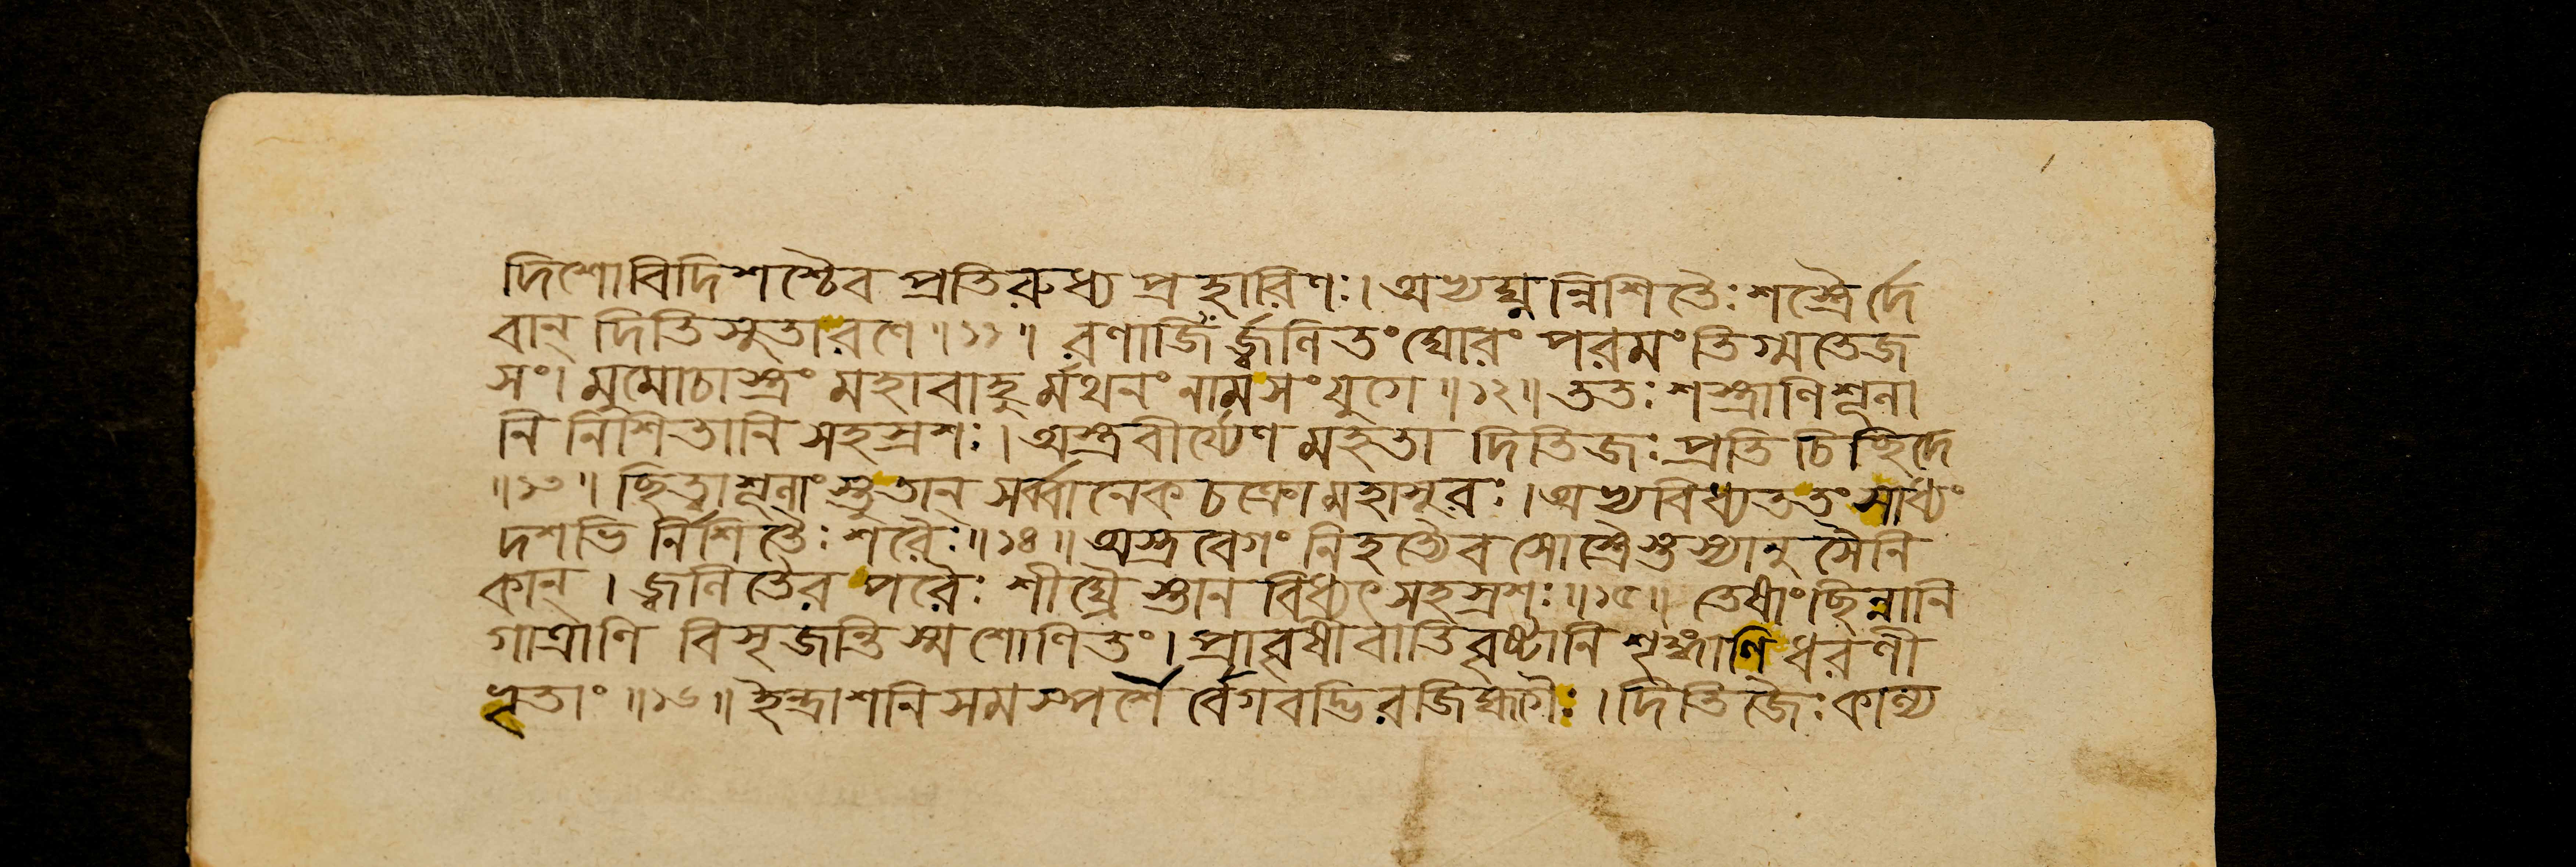 দিশোবিদিশশ্চৈব প্রতিরুধ্য প্রহারিণঃ। অভ্যঘ্নন্নিশিতৈঃ শস্ত্রৈর্দে
বান্ দিতিসুতারণে॥১১॥ রণার্জির্জ্বণিতং ঘোরং পরমং তিগ্মতেজ
সং। মুমোচাস্ত্রং মহাবাহুর্মথনং নামসংযুগে॥১২॥ ততঃ শস্ত্রাণিশূনা
নি নিশিতানি সহস্রশঃ। অস্ত্রবীর্য্যেণ মহতা দিতিজঃ প্রতি চিচ্ছিদে
॥১৩॥ ছিত্বাশূনাংস্তুতান্ সর্ব্বানেকচক্রোমহাসুরঃ। অভ্যবিধ্যততং সাধ্যং
দশভির্নিশিতৈঃ শরৈঃ॥১৪॥ অস্ত্রবেগং নিহত্যৈব সোস্ত্রৈস্তস্যানুসৈনি
কান্। জ্বণিতৈর পরৈঃ শীঘ্রৈস্তানবিধ্যৎ সহস্রশঃ॥১৫॥ তেষাং ছিন্নানি
গাত্রাণি বিসৃজন্তিস্মশোণিতং। প্রাবৃষীবাতিবৃষ্টানি শৃঙ্গাণি ধরণী
ভৃতাং॥১৬॥ ইন্দ্রাশনিসমস্পর্শৈর্বেগবদ্ভিরজিহ্মগৈঃ। দিতিজৈঃ কান্য